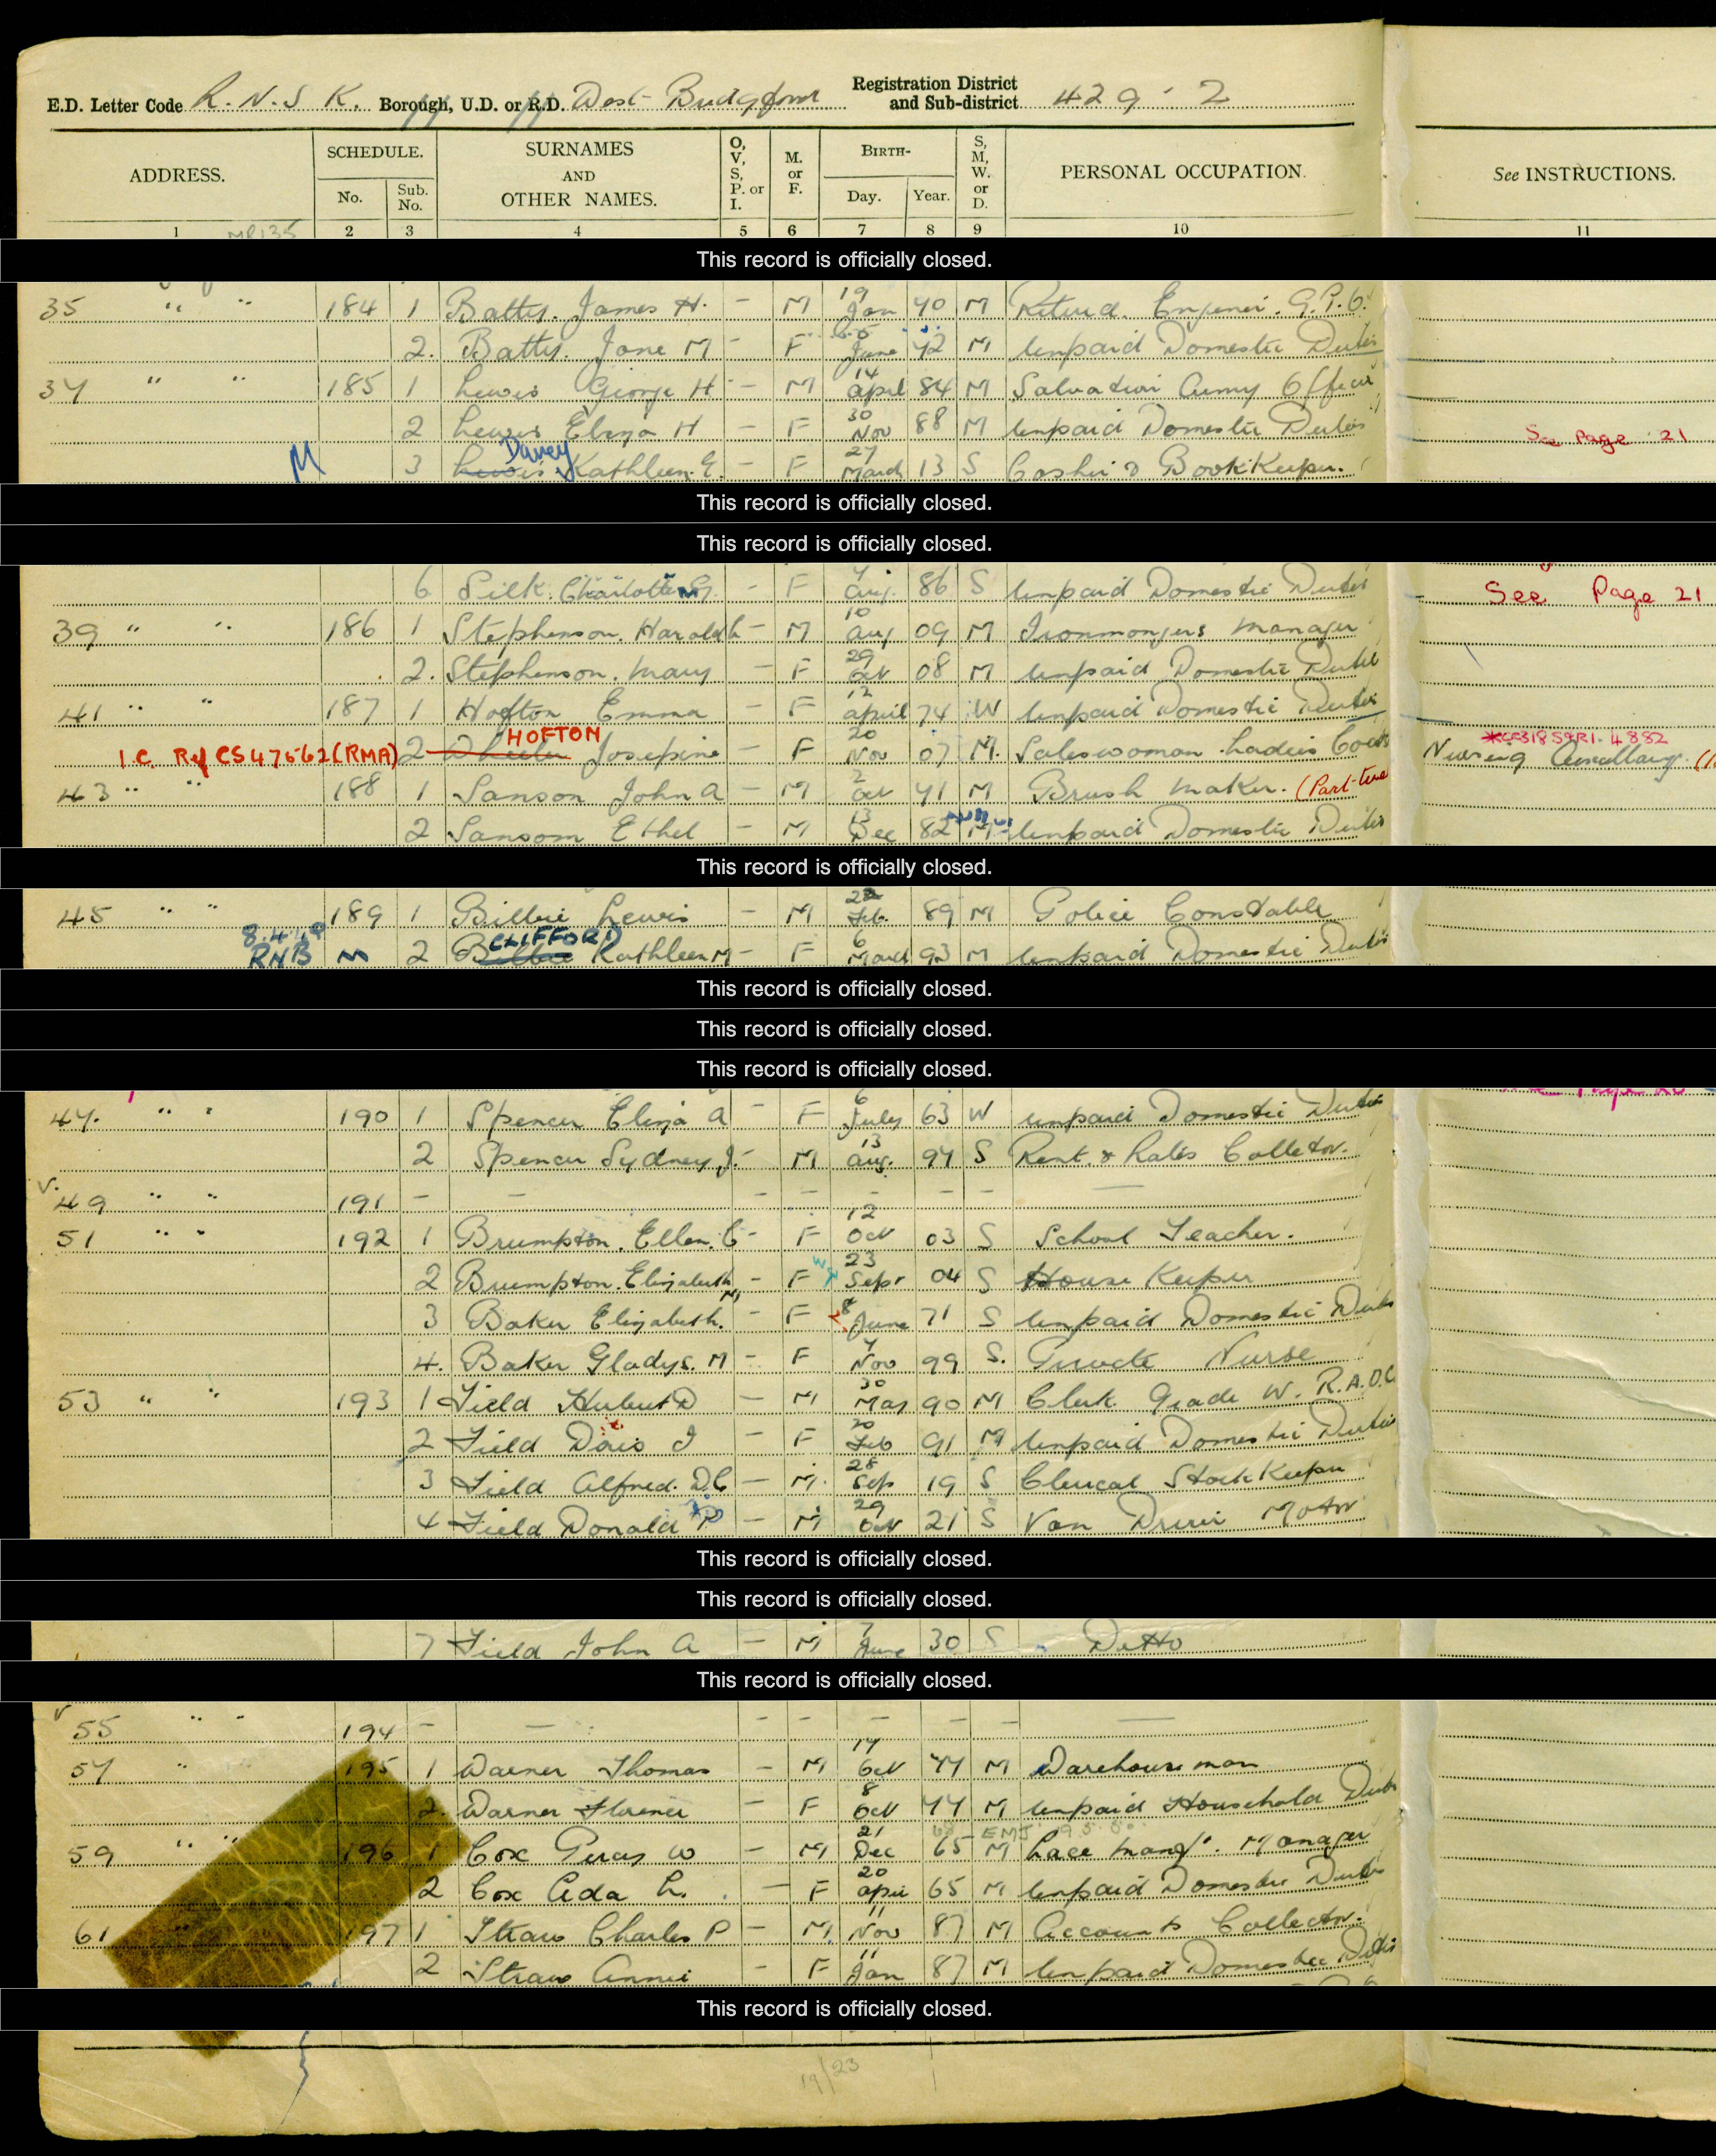 E.D. Letter Code R.N.S K. Borough, U.D. or R.D. West Bridgford Registration District and Sub-district 429 . 2
ADDRESS. SCHEDULE. No. Sub. No. SURNAMES AND OTHER NAMES. O, V, S, P. or I. M. or F. BIRTH- Day. Year. S, M, W. or D. PERSONAL OCCUPATION. See INSTRUCTIONS.
1 2 3 4 5 6 7 8 9 10 11
This record is officially closed.
35 " " 184 1 Batty. James H. - M 19 Jan 70 M Retired. Engineer. G.P.O.
2. Batty. Jane M - F June 72 M Unpaid Domestic Duties
37 " " 185 1 Lewis George H - M 14 April 84 M Salvation Army Officer
2 Lewis Eliza H - F 30 Nov 88 M Unpaid Domestic Duties See Page 21
M 3 Lewis Davey Kathleen. E. - F 27 March 13 S Cashier & BookKeeper.
This record is officially closed.
This record is officially closed.
6 Silk. Charlotte - F 7 Aug. 86 S Unpaid Domestic Duties See Page 21
39 " " 186 1 Stephenson. Harold - M 10 Aug 09 M Ironmongers Manager
2. Stephenson. Mary - F 29 Oct 08 M Unpaid Domestic Duties
41 " " 187 1 Hofton Emma - F 12 April 74 W Unpaid Domestic Duties
I.C. Ref CS47562 (RMA) 2 Wheeler HOFTON Josepine - F 20 Nov 07 M. Saleswoman. Ladies Coats Nursing Auxillary
43 " " 188 1 Sanson John A - M 2 Oct 71 M Brush Maker. (Part-time
2 Sansom Ethel - M 13 Dec 82 M Unpaid Domestic Duties
This record is officially closed.
45 " " 189 1 Bilbie Lewis - M Feb. 89 M Police Constable
RNB M 2 Bilbie CLIFFORD Kathleen M - F 6 March 93 M Unpaid Domestic Duties
This record is officially closed.
This record is officially closed.
This record is officially closed.
47. " " 190 1 Spencer Eliza A - F 6 July 63 W Unpaid Domestic Duties
2 Spencer Sydney J. - M 13 Aug. 97 S Rent. & Rates Collector.
v. 49 " " 191 - - - - - - - -
51 " " 192 1 Brumpton. Ellen. C - F 12 Oct 03 S School Teacher.
2 Brumpton. Elizabeth M - F 23 Sepr 04 S House Keeper
3 Baker Elizabeth. - F 8 June 71 S Unpaid Domestic Duties
4. Baker Gladys. M - F 7 Nov 99 S. Private Nurse
53 " " 193 1 Field Hubert D - M 30 May 90 M Clerk Grade W. R.A.O.C
2 Field Doris I - F 20 Feb 91 M Unpaid Domestic Duties
3 Field Alfred. D.C - M. 28 Sep 19 S Clerical StockKeeper
4 Field Donald P - M 29 Oct 21 S Van Driver Motor
This record is officially closed.
This record is officially closed.
7 Field John A - M 7 June 30 S Ditto
This record is officially closed.
v 55 " " 194 - - - - - - - -
57 " 195 1 Warner Thomas - M 17 Oct 77 M Warehouseman
2. Warner Florence - F 8 Oct 77 M Unpaid Household Duties
59 " " 196 1 Cox Percy W - M 21 Dec 65 M Lace Manf. Manager
2 Cox Ada L. - F 20 April 65 M Unpaid Domestic Duties
61 " 197 1 Straw Charles P - M. 11 Nov 87 M Accounts Collector.
2 Straw Annie - F 11 Jan 87 M Unpaid Domestic Duties
This record is officially closed.
19/23